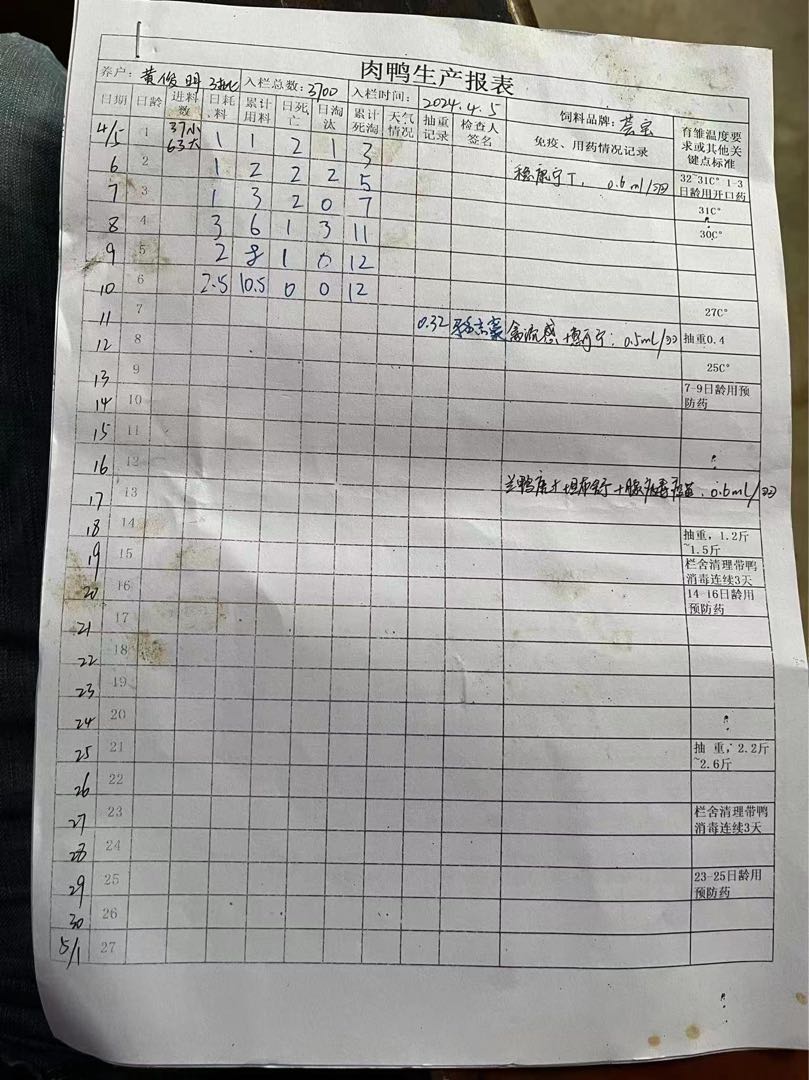 肉鸭生产报表
养户: 黄俊明 入栏总数: 3700 入栏时间: 2024.4.5 饲料品牌:
日期 日龄 进料数 日耗料 累计用料 日死亡 日淘汰 累计死淘 天气情况 抽重记录 检查人签名 免疫、用药情况记录 育雏温度要求或其他关键点标准
4/5 1 37小 63大 1 1 2 1 3
6 2 1 2 2 2 5 0.6ml/羽 32~31C° 1-3日龄用开口药
7 3 1 3 2 0 7 31C°
8 4 3 6 1 3 11 30C°
9 5 2 8 1 0 12
10 6 2.5 10.5 0 0 12
11 7 27C°
12 8 0.32 禽流感 0.5ml/羽 抽重0.4
13 9 25C°
14 10 7-9日龄用预防药
15 11
16 12
17 13 0.6ml/羽
18 14
19 15 抽重,1.2斤~1.5斤
20 16 栏舍清理带鸭消毒连续3天
21 17 14-16日龄用预防药
22 18
23 19
24 20
25 21 抽 重,2.2斤~2.6斤
26 22
27 23 栏舍清理带鸭消毒连续3天
28 24
29 25 23-25日龄用预防药
30 26
5/1 27